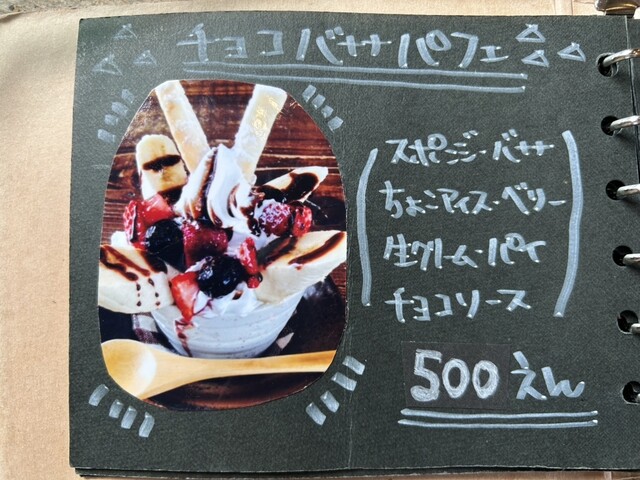 チョコバナナパフェ
スポンジ・バナナ
ちょこアイス・ベリー
生クリーム・パイ
チョコソース
500えん